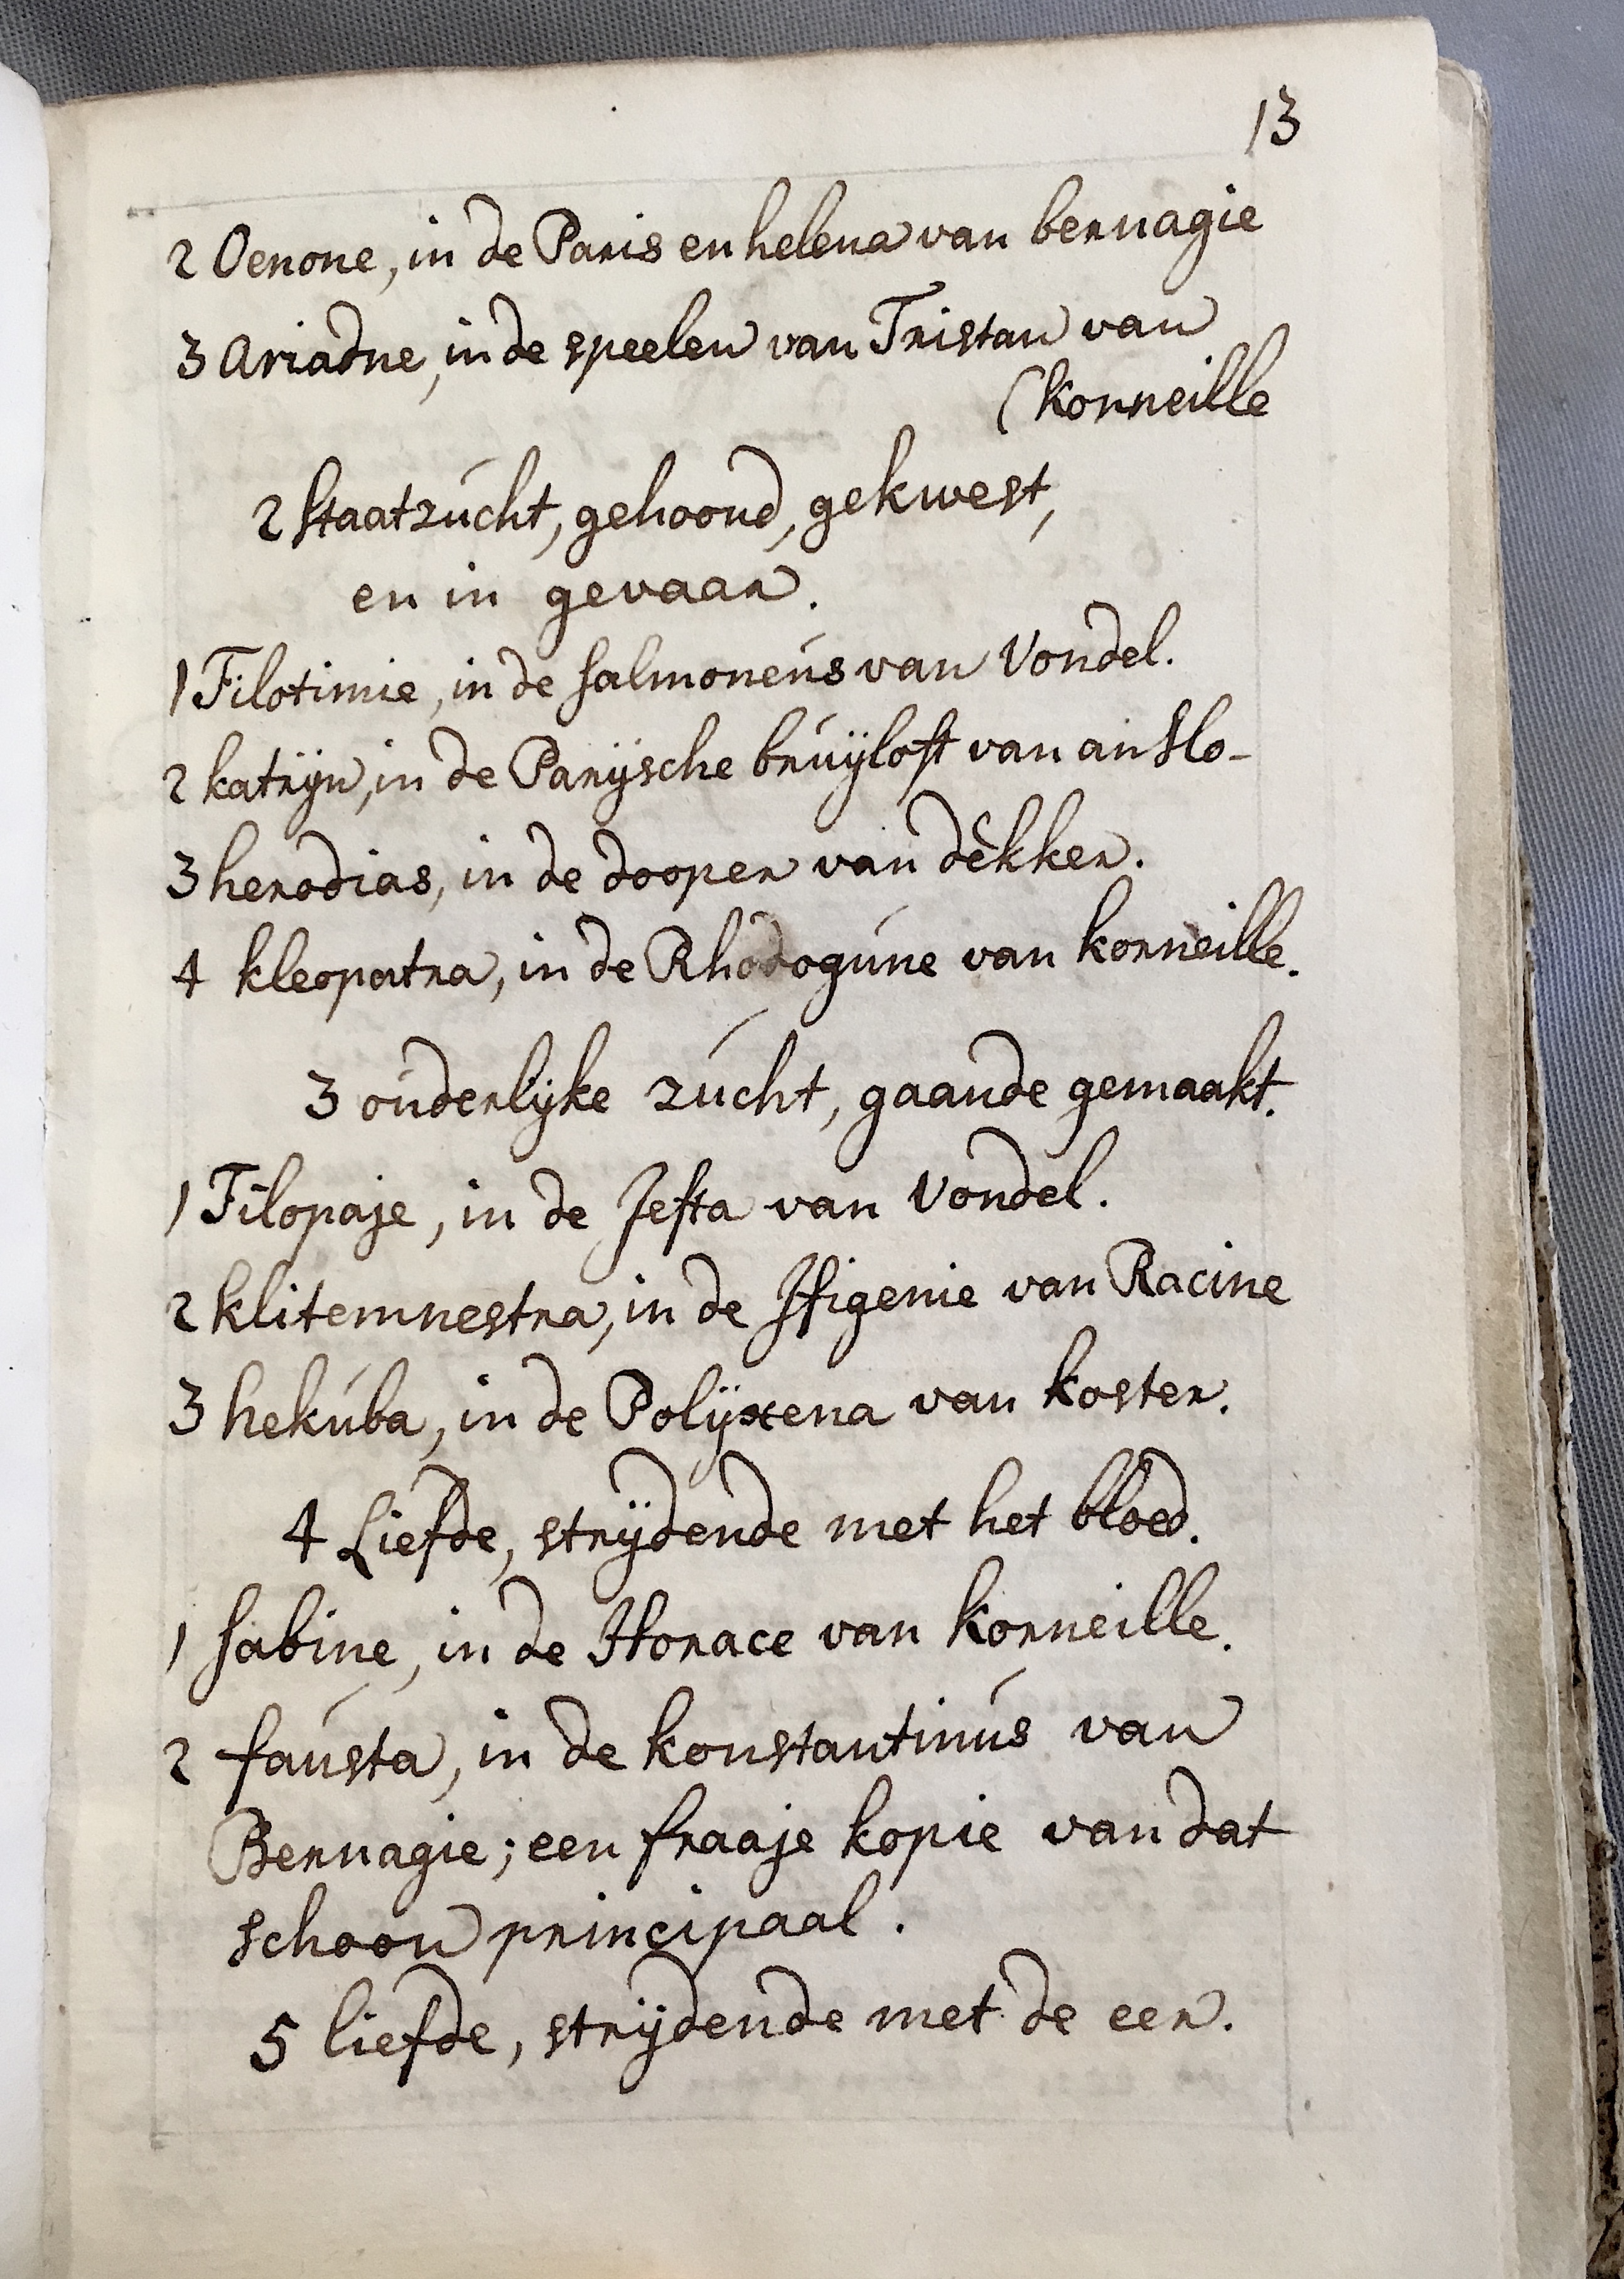 13
2 Oenone, in de Paris en helena van bernagie
3 Ariadne, in de speelen van Tristan van
(korneille
2 Staatzúcht, gehoond, gekwest,
en in gevaar.
1 Filotimie, in de Salmoneús van Vondel.
2 katryn, in de Parÿsche brúÿloft van anslo-
3 herodias, in de dooper van dekker.
4 kleopatra, in de Rhodogúne van korneille.
3 oúderlÿke zúcht, gaande gemaakt.
1 Filopaje, in de Jefta van Vondel.
2 klitemnestra, in de Ifigenie van Racine
3 hekúba, in de Polÿxena van koster.
4 Liefde, strÿdende met het bloed.
1 Sabine, in de Horace van korneille.
2 faústa, in de konstantinús van
Bernagie; een fraaje kopie van dat
schoon principaal.
5 liefde, strÿdende met de eer.